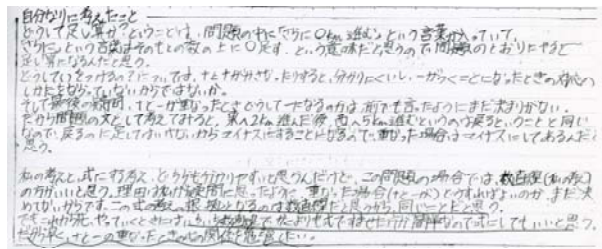 自分なりに考えたこと
どうして足し算か？ということは、問題の中に「さらに○km進む」という言葉が入っていて、
「さらに」という言葉はそのもとの数の上に○足す、という意味だと思うので問題のとおりにやると
足し算になるんだと思う。
どうして()をつけるの？については、+と+が
しかたをならっていないからではないか。
そして最後の疑問、+と-が重なったときどうして-になるのかは、前でも言ったようにまだ決まりがない。
だから問題の文として考えてみると、東へ2km進んだ後、西へ5km進むというのは戻るということと同じ
なので、戻るのに足してはいけないからマイナスにすることになるので、重なった場合はマイナスにしてあるんだと
思う。
私の考えと、式に 考え、どちらも分かりやすいと思うんだけど、この問題の場合では、数直線(私の考え)
の方がいいと思う。理由は私が疑問に思ったように、重なった場合(+と-が)どうすればよいのか、まだ決
めてないからです。この式の考えの根拠となるのは数直線だと思うから、同じことだと思う。
でもこれから先、やっていくときには、 式の方が簡単なので式にしてもいいと思う。
だから早く、+と-の重なったときの の関係を勉強したい。